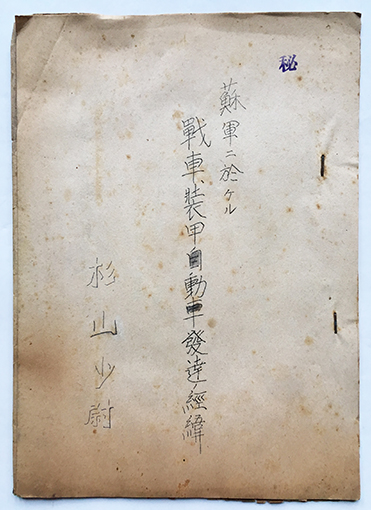 秘
蘇軍ニ於ケル
戰車、装甲自動車發達ノ經緯
杉山少尉